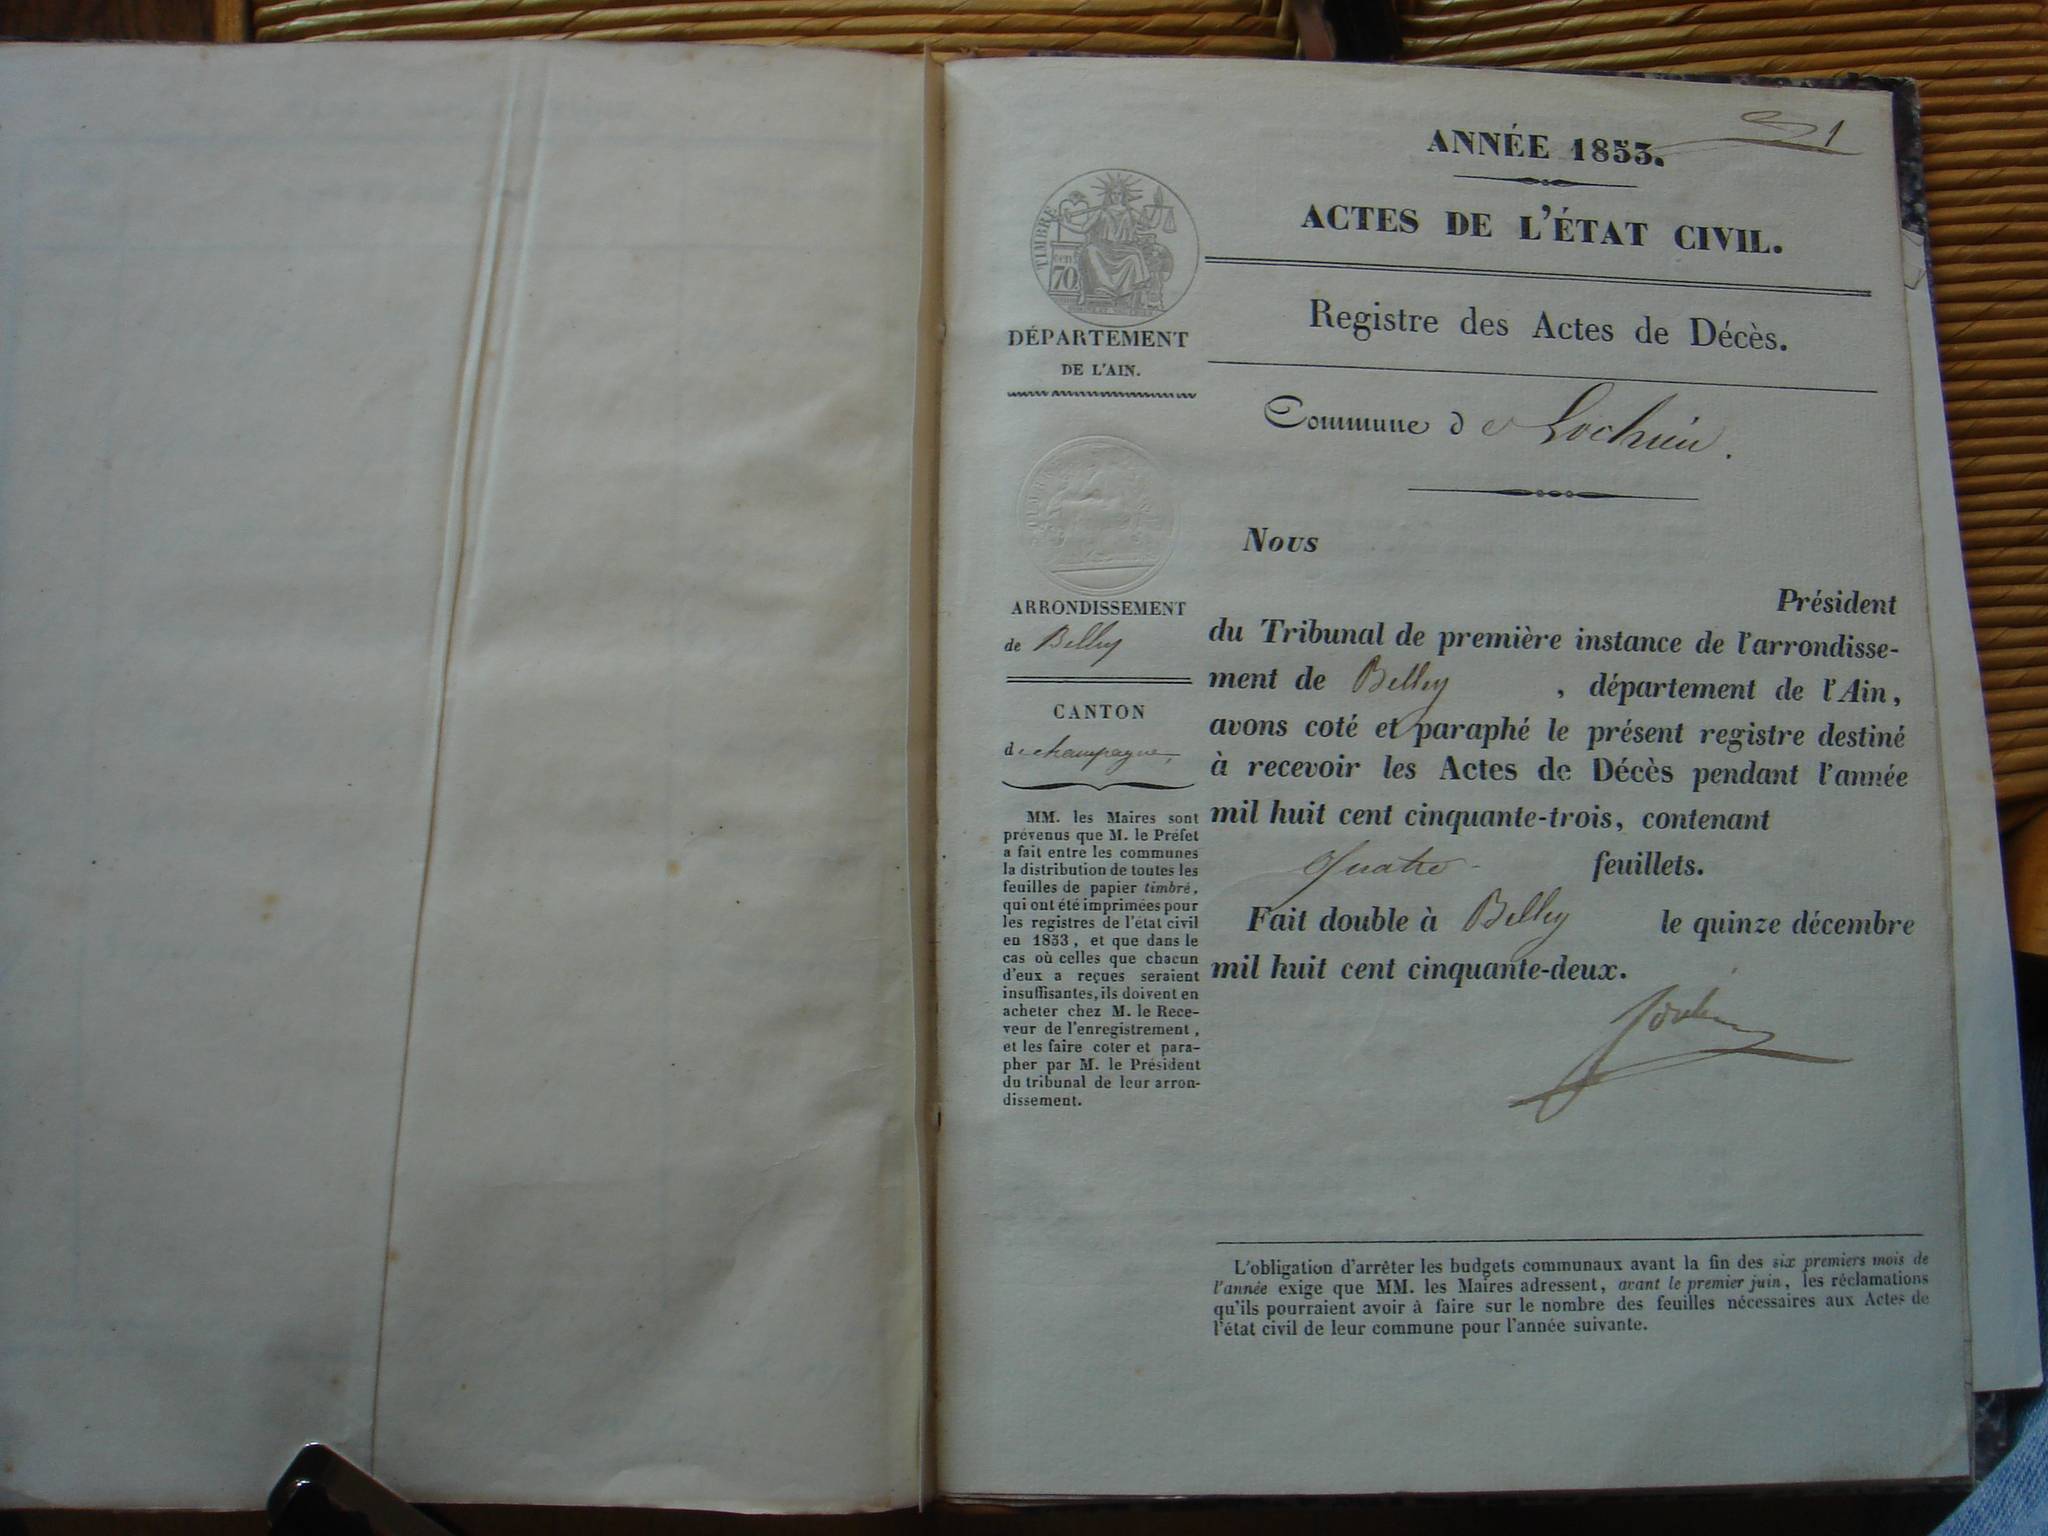 1
ANNÉE 1853.
ACTES DE L'ÉTAT CIVIL.
Registre des Actes de Décès.
Commune de Lochieu.
TIMBRE
cen
70
DÉPARTEMENT
DE L'AIN.
ARRONDISSEMENT
de Belley
CANTON
de champagne,
MM. les Maires sont
prévenus que M. le Préfet
a fait entre les communes
la distribution de toutes les
feuilles de papier timbré,
qui ont été imprimées pour
les registres de l'état civil
en 1853, et que dans le
cas où celles que chacun
d'eux a reçues seraient
insuffisantes, ils doivent en
acheter chez M. le Rece-
veur de l'enregistrement,
et les faire coter et para-
pher par M. le Président
du tribunal de leur arron-
dissement.
Nous
Président
du Tribunal de première instance de l'arrondisse-
ment de Belley , département de l'Ain,
avons coté et paraphé le présent registre destiné
à recevoir les Actes de Décès pendant l'année
mil huit cent cinquante-trois, contenant
Quatre - feuillets.
Fait double à Belley le quinze décembre
mil huit cent cinquante-deux.
L'obligation d'arrêter les budgets communaux avant la fin des six premiers mois de
l'année exige que MM. les Maires adressent, avant le premier juin, les réclamations
qu'ils pourraient avoir à faire sur le nombre des feuilles nécessaires aux Actes de
l'état civil de leur commune pour l'année suivante.